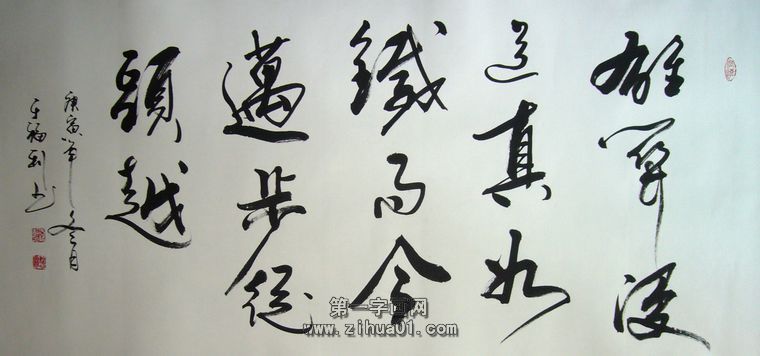 雄關漫
道真如
鐵而今
邁步從
頭越
庚寅年冬月
福利书
第一字画网
www.zihua01.com